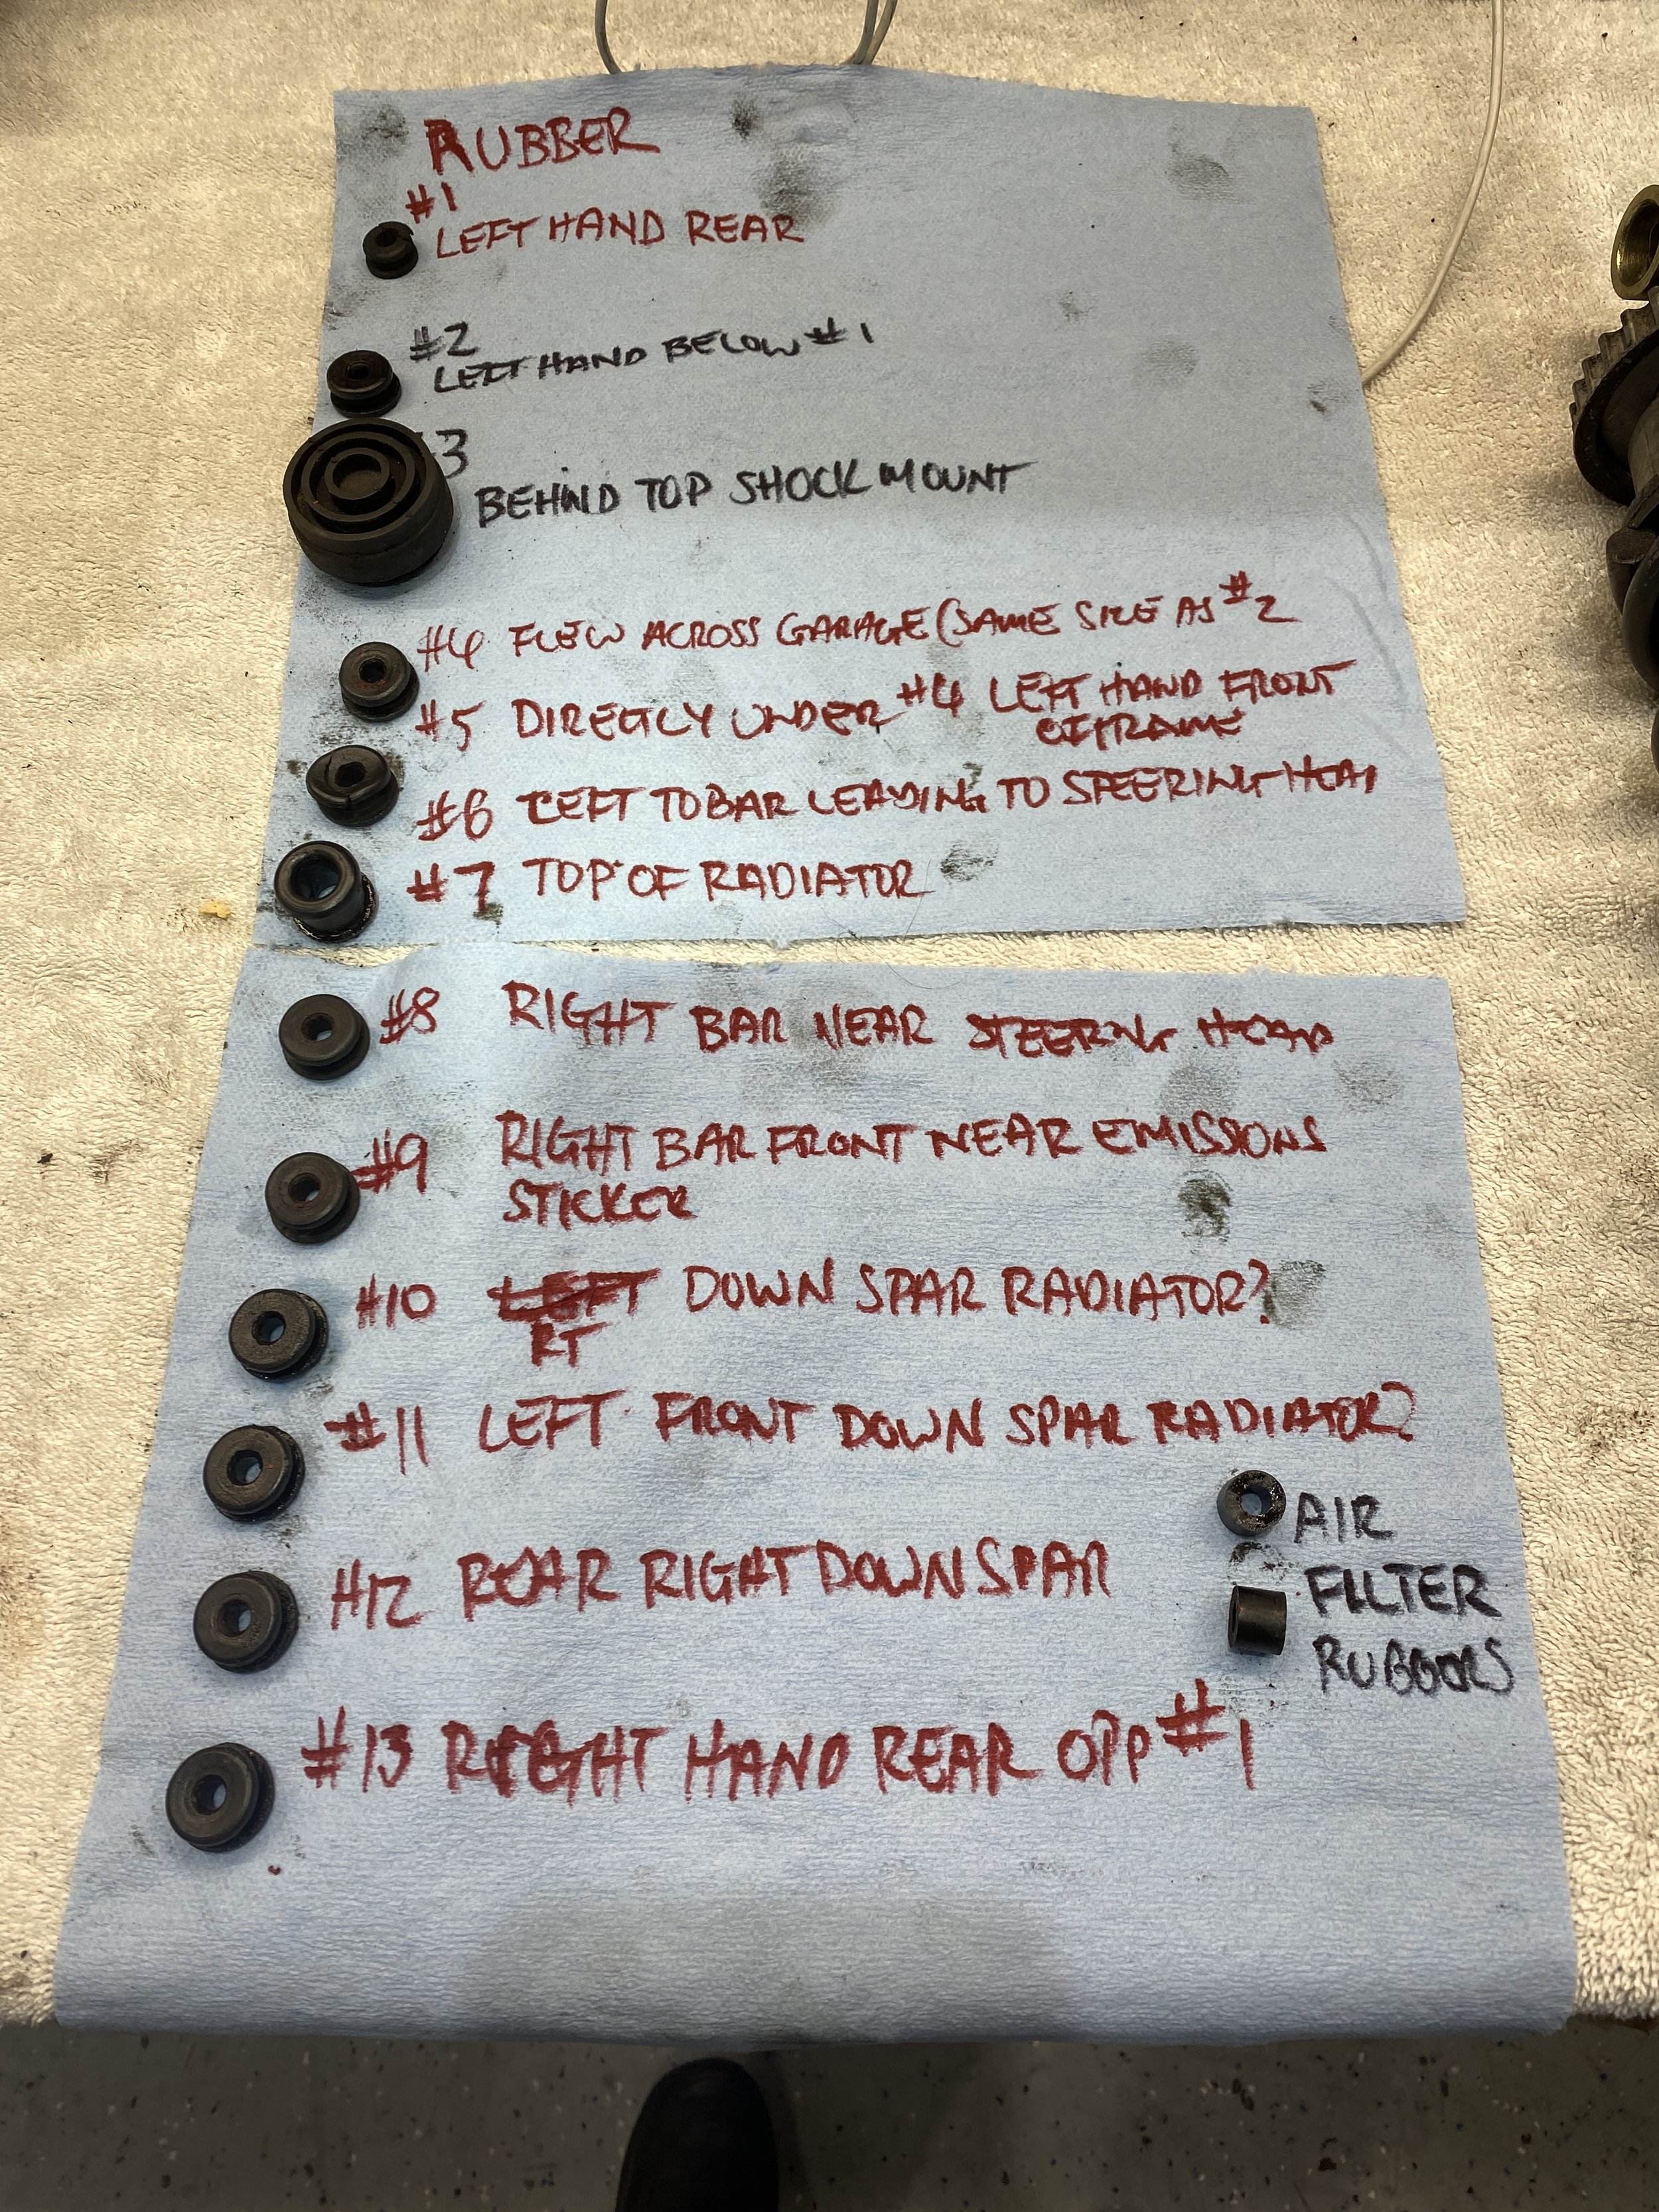 RUBBER
#1
LEFT HAND REAR
#2
LEFT HAND BELOW #1
3
BEHIND TOP SHOCK MOUNT
#4 FLEW ACROSS GARAGE (SAME SIZE AS #2
#5 DIRECTLY UNDER #4 LEFT HAND FRONT
OF FRAME
#6 LEFT TO BAR LEADING TO STEERING HEAD
#7 TOP OF RADIATOR
#8 RIGHT BAR NEAR STEERING HEAD
#9 RIGHT BAR FRONT NEAR EMISSIONS
STICKER
#10 LEFT DOWN SPAR RADIATOR?
RT
#11 LEFT FRONT DOWN SPAR RADIATOR?
AIR
FILTER
RUBBERS
#12 REAR RIGHT DOWN SPAR
#13 RIGHT HAND REAR OPP #1